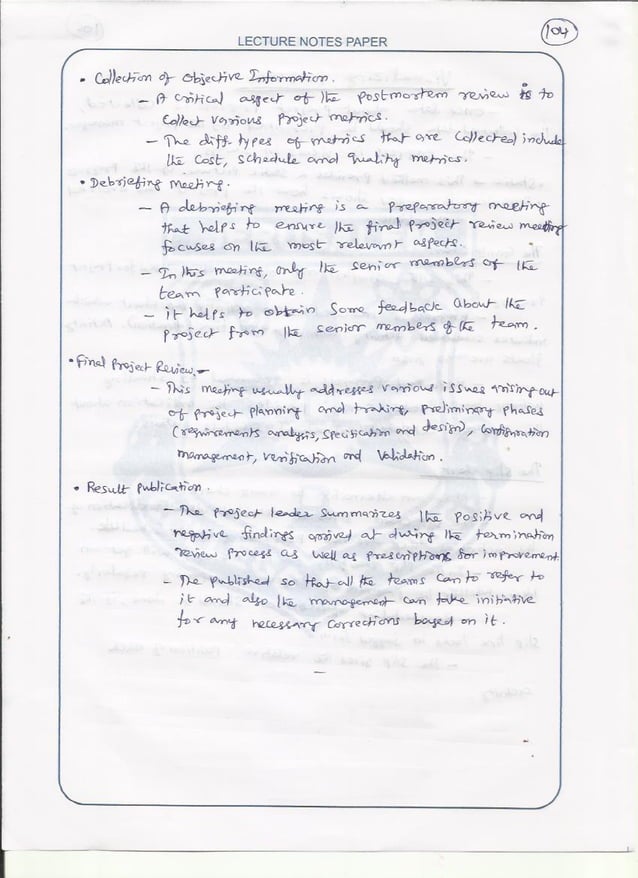 104
LECTURE NOTES PAPER
• Collection of Objective Information.
- A critical aspect of the postmortem review is to
Collect various Project metrics.
- The diff. types of metrics that are Collected include
the Cost, Schedule and Quality metrics.
• Debriefing Meeting.
- A debriefing meeting is a preparatory meeting
that helps to ensure the final project review meeting
focuses on the most relevant aspects.
- In this meeting, only the senior members of the
team participate.
- it helps to obtain Some feedback about the
project from the senior members of the team.
• Final Project Review.-
- This meeting usually addresses various issues arising out
of project planning and traking, preliminary phases
(requirements analysis, specification and design), configuration
management, verification and Validation.
• Result publication.
- The project leader summarizes the positive and
negative findings arrived at during the termination
review process as well as prescriptions for improvement
- The published so that all the teams can to refer to
it and also the management can take initiative
for any necessary corrections based on it.